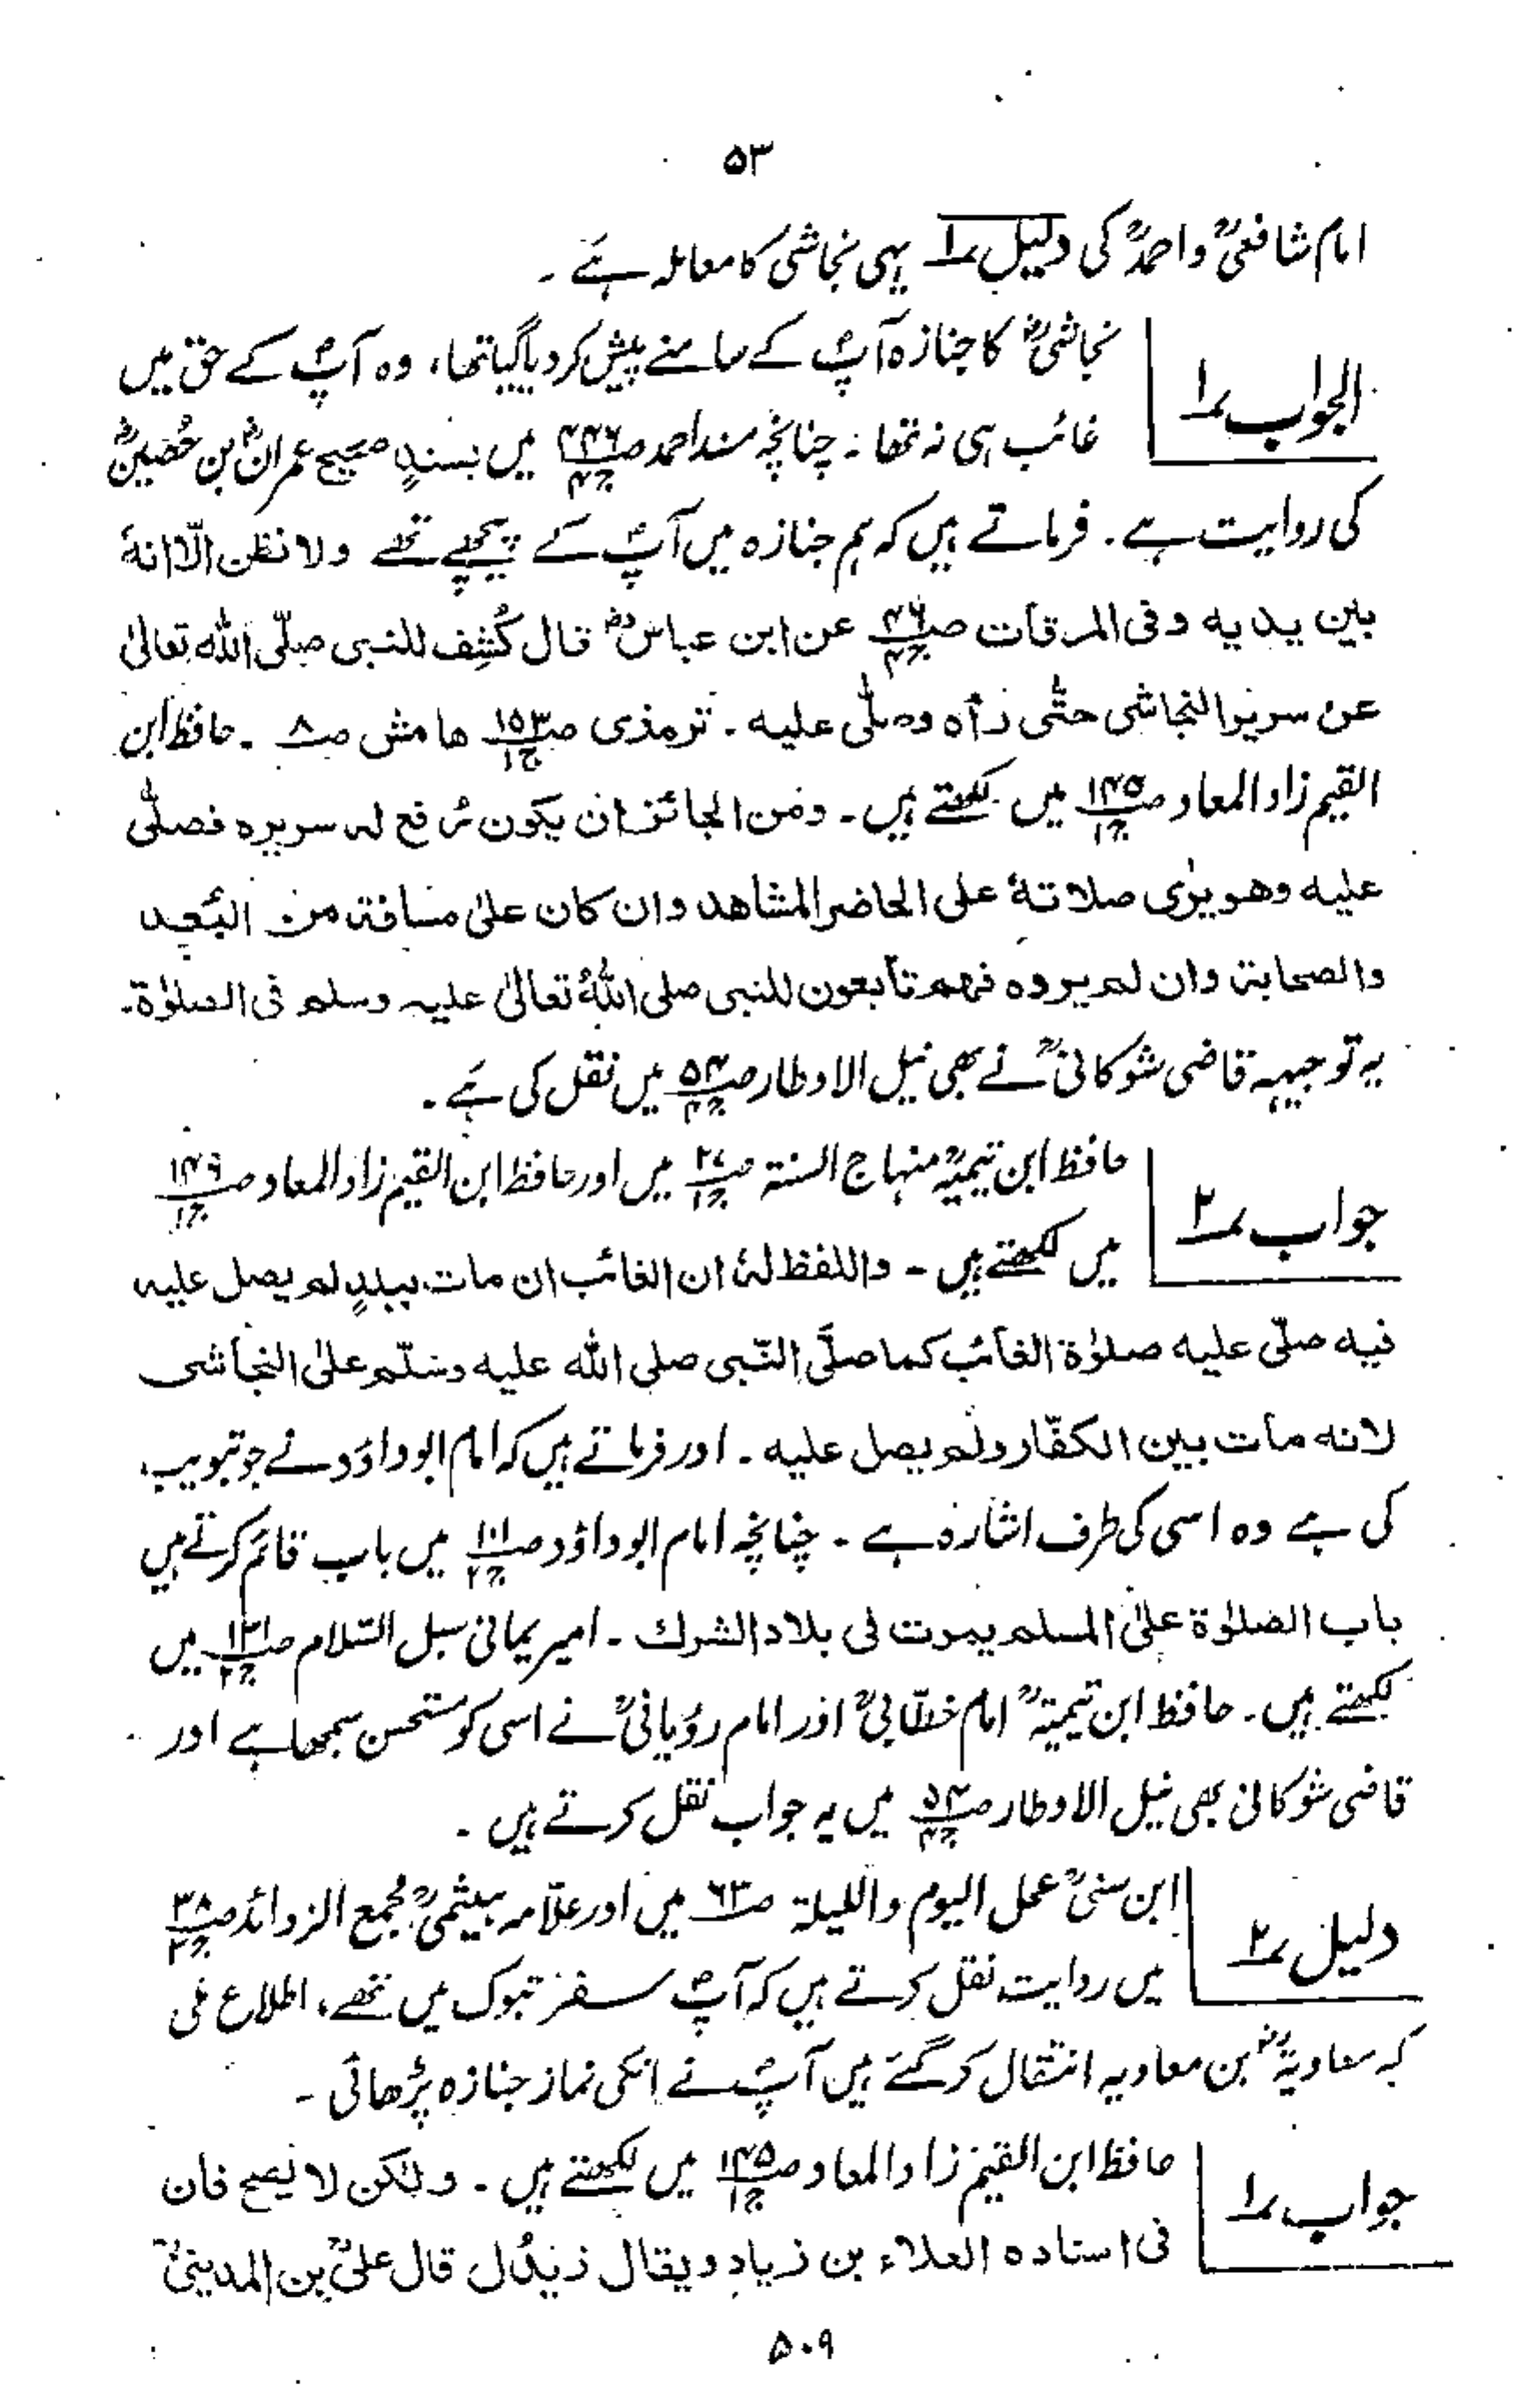 ۵۳
امام شافعیؒ واحمدؒ کی دلیل ۱؎ یہی نجاشی کا معاملہ ہے ۔
الجواب ۱؎
نجاشیؓ کا جنازہ آپؐ کے سامنے پیش کر دیا گیا تھا، وہ آپؐ کے حق میں
غائب ہی نہ تھا ۔ چنانچہ مسند احمد صـ۴۴۶ ج۴ میں بسندٍ صحیح عمرانؓ بن حُصینؓ
کی روایت ہے ۔ فرماتے ہیں کہ ہم جنازہ میں آپؐ کے پیچھے تھے ولا نظن الّا انهٗ
بین یدیه وفی المرقات صـ۴۶ ج۴ عن ابن عباسؓ قال کُشِف للنبی صلّی الله تعالیٰ
عن سریر النجاشی حتّٰی رأه وصلّٰی علیه ۔ ترمذی صـ۱۵۳ ج۱ هامش صـ۸ ۔ حافظ ابن
القیم زاد المعاد صـ۱۴۵ ج۱ میں لکھتے ہیں ۔ ومن الجائز ان یکون رُفع له سریره فصلّٰی
علیه وهو یرٰی صلاتهٗ علی الحاضر المشاهد وان کان علیٰ مسافة من البُعد
والصحابة وان لم یروه فهم تابعون للنبی صلی اللهُ تعالیٰ علیه وسلم فی الصلوٰة۔
یہ توجیہہ قاضی شوکانیؒ نے بھی نیل الاوطار صـ۵۴ ج۴ میں نقل کی ہے ۔
جواب ۲؎
حافظ ابن تیمیہؒ منہاج السنۃ صـ۲۷ ج۱ میں اور حافظ ابن القیم زاد المعاد صـ۱۴۹ ج۱
میں لکھتے ہیں ۔ واللفظ لهٗ ان الغائب ان مات ببلدٍ لم یصل علیه
فیه صلّی علیه صلوٰة الغائب کما صلَّی النّبی صلی الله علیه وسلّم علیٰ النجاشی
لانه مات بین الکفّار ولم یصل علیه ۔ اور فرماتے ہیں کہ امام ابوداؤد نے جو تبویب
کی ہے وہ اسی کی طرف اشارہ ہے ۔ چنانچہ امام ابوداؤد صـ۱۰۱ ج۲ میں باب قائم کرتے ہیں
باب الصلوٰة علیٰ المسلم یموت فی بلاد الشرك ۔ امیر یمانی سبل السّلام صـ۱۳۱ ج۲ میں
لکھتے ہیں ۔ حافظ ابن تیمیہؒ امام خطّابیؒ اور امام رؤیانیؒ نے اسی کو مستحسن سمجھا ہے اور
قاضی شوکانی بھی نیل الاوطار صـ۵۴ ج۴ میں یہ جواب نقل کرتے ہیں ۔
دلیل ۲؎
ابن سنیؒ عمل الیوم واللیلۃ صـ۶۳ میں اور علّامہ ہیثمیؒ مجمع الزوائد صـ۳۸ ج۳
میں روایت نقل کرتے ہیں کہ آپؐ سفر تبوک میں تھے، اطلاع ملی
کہ معاویہؓ بن معاویہ انتقال کر گئے ہیں آپؐ نے انکی نماز جنازہ پڑھائی ۔
جواب ۱؎
حافظ ابن القیم زاد المعاد صـ۱۴۵ ج۱ میں لکھتے ہیں ۔ ولٰکن لا یصح فان
فی اسناده العلاء بن زیاد ویقال زیدُل قال علیؒ بن المدینیؒ
۵۰۹